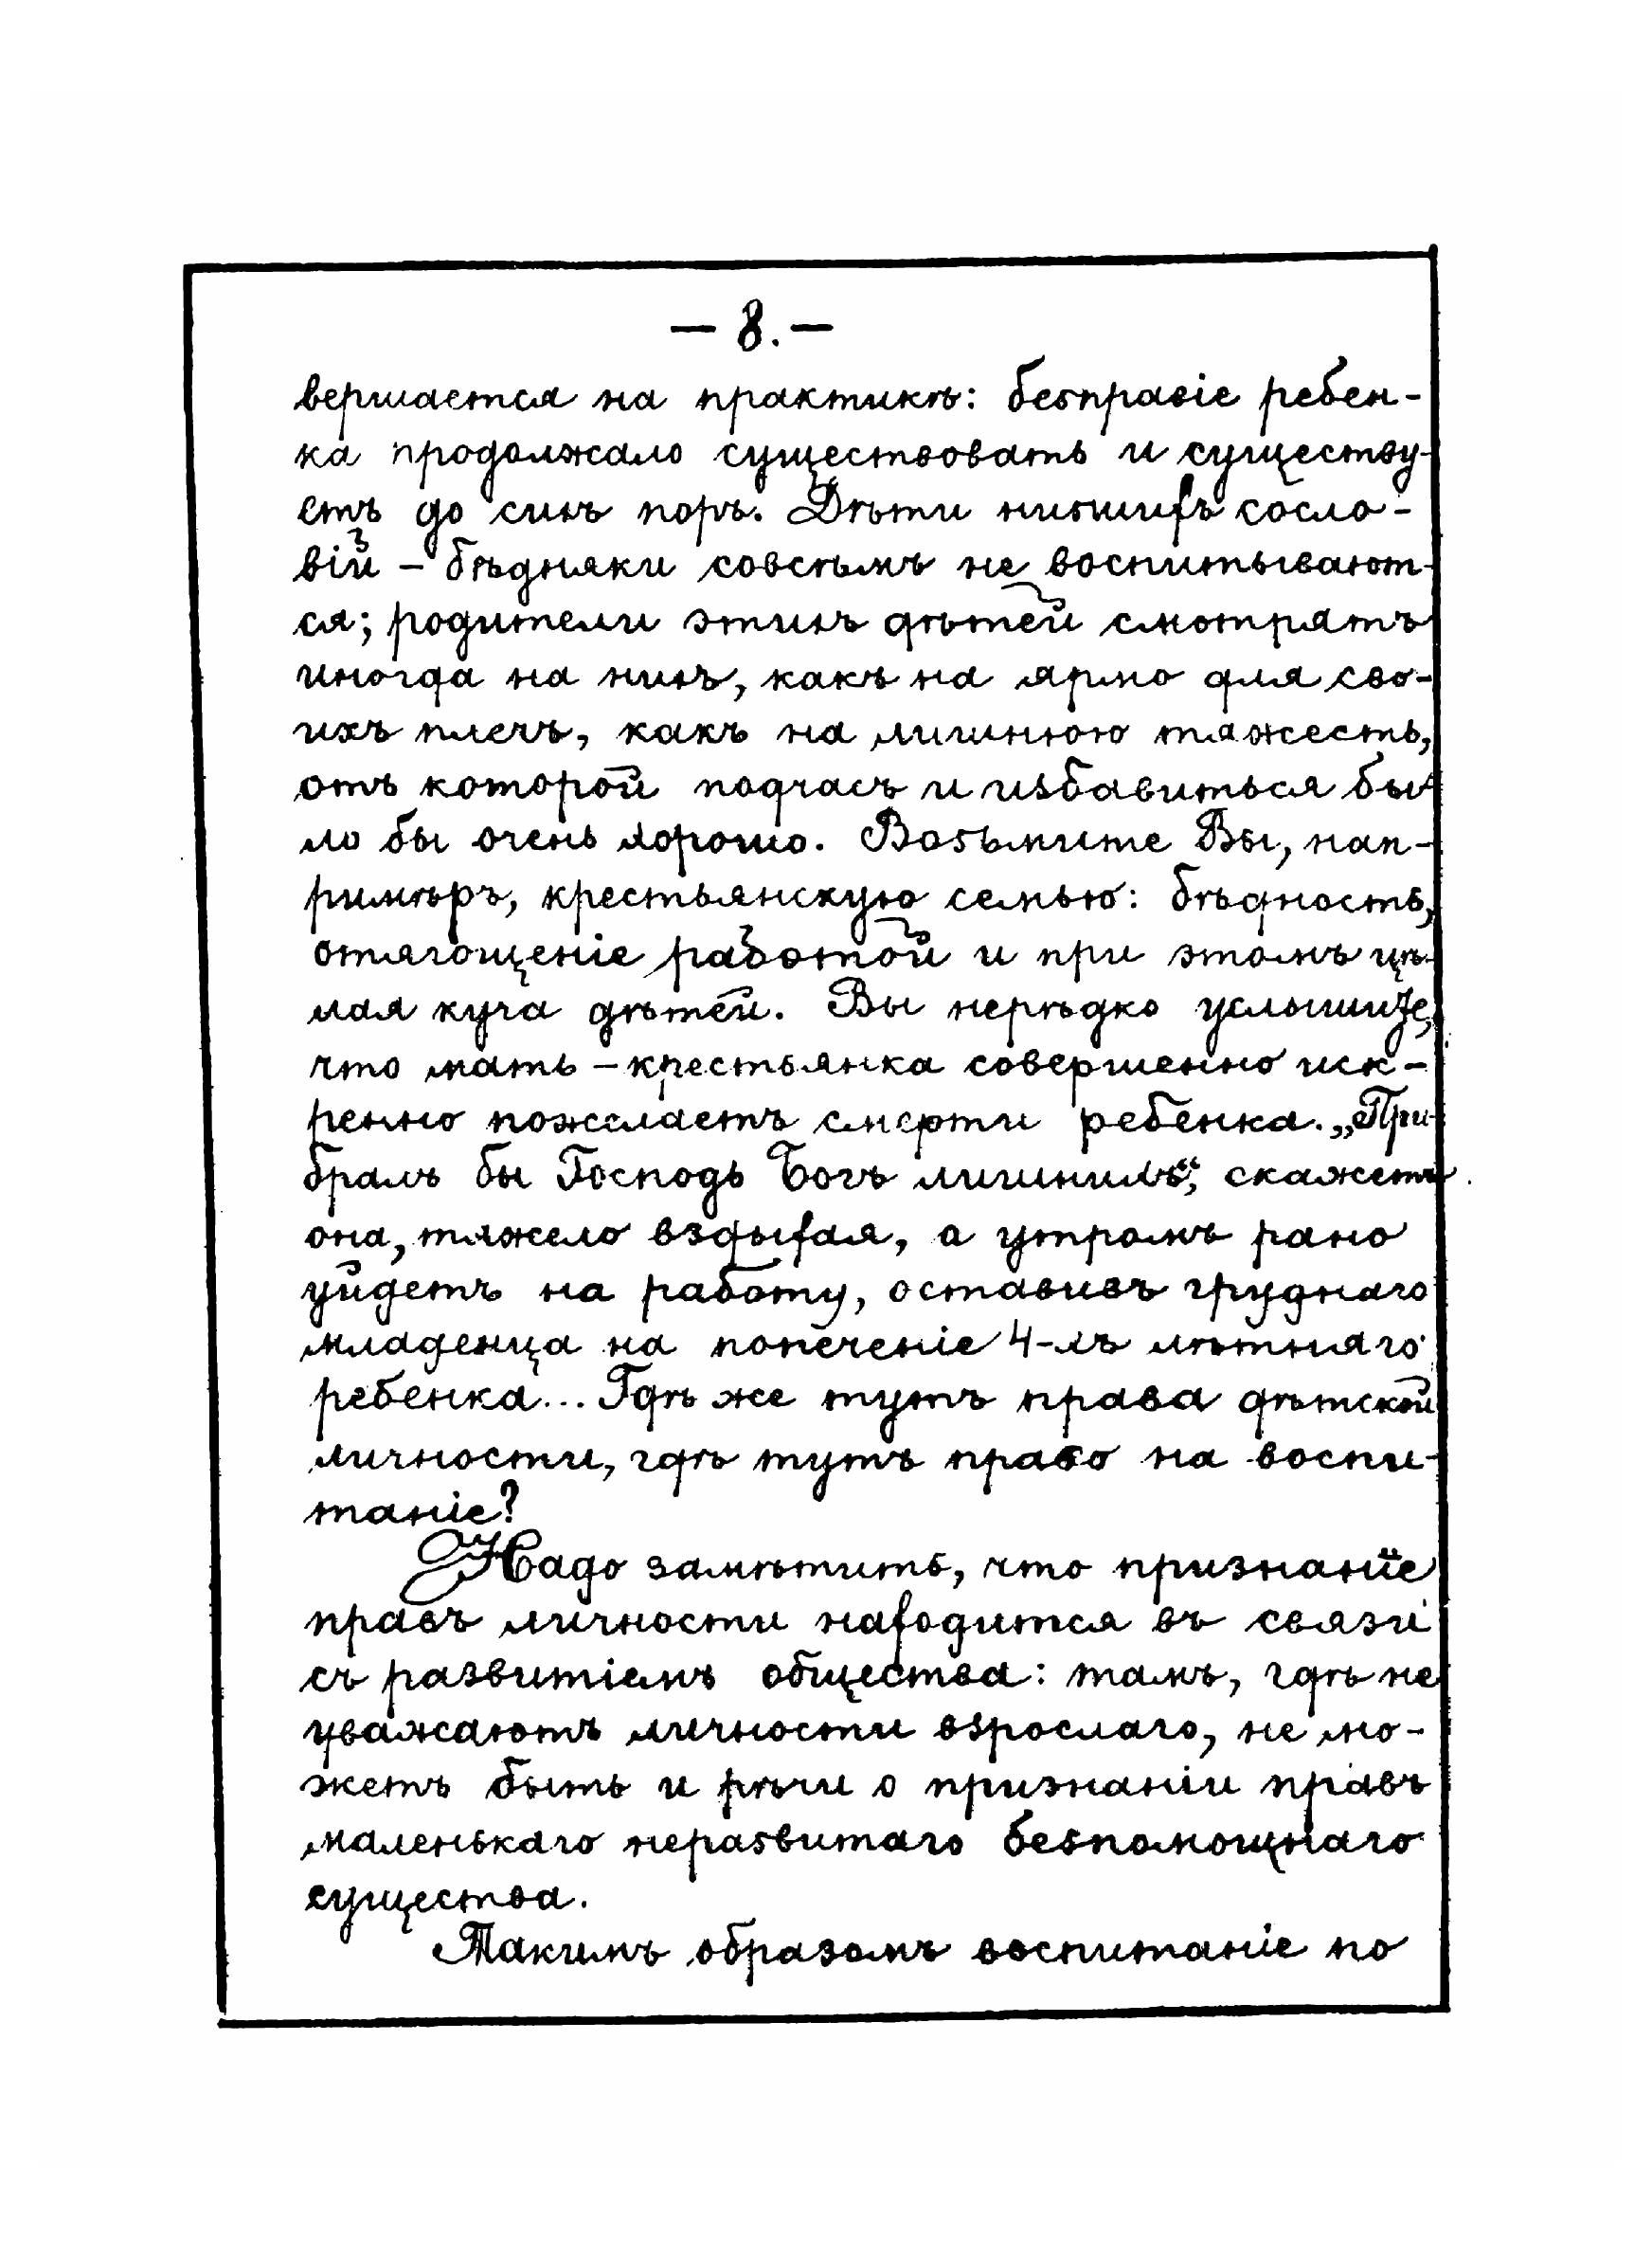 — 8. —
вершается на практикѣ: безправіе ребен-
ка продолжало существовать и существу-
етъ до сихъ поръ. Дѣти низшихъ сосло-
вій – бѣдняки совсѣмъ не воспитывают-
ся; родители этихъ дѣтей смотрятъ
иногда на нихъ, какъ на ярмо для сво-
ихъ плечъ, какъ на лишнюю тяжесть,
отъ которой подчасъ и избавиться бы-
ло бы очень хорошо. Возьмите Вы, нап-
римѣръ, крестьянскую семью: бѣдность,
отягощеніе работой и при этомъ цѣ-
лая куча дѣтей. Вы нерѣдко услышите,
что мать – крестьянка совершенно иск-
ренно пожелаетъ смерти ребенка. „При-
бралъ бы Господь Богъ лишнихъ“, скажетъ
она, тяжело вздыхая, а утромъ рано
уйдетъ на работу, оставивъ груднаго
младенца на попеченіе 4-хъ лѣтняго
ребенка... Гдѣ же тутъ права дѣтской
личности, гдѣ тутъ право на воспи-
таніе?
Надо замѣтить, что признаніе
правъ личности находится въ связи
съ развитіемъ общества: тамъ, гдѣ не
уважаютъ личности взрослаго, не мо-
жетъ быть и рѣчи о признаніи правъ
маленькаго неразвитаго безпомощнаго
существа.
Такимъ образомъ воспитаніе по